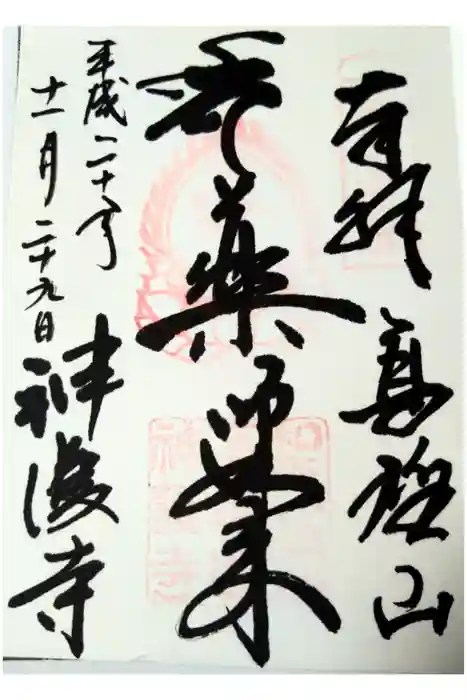 奉拝 高雄山
薬師如来
平成二十年
十一月二十九日
神護寺